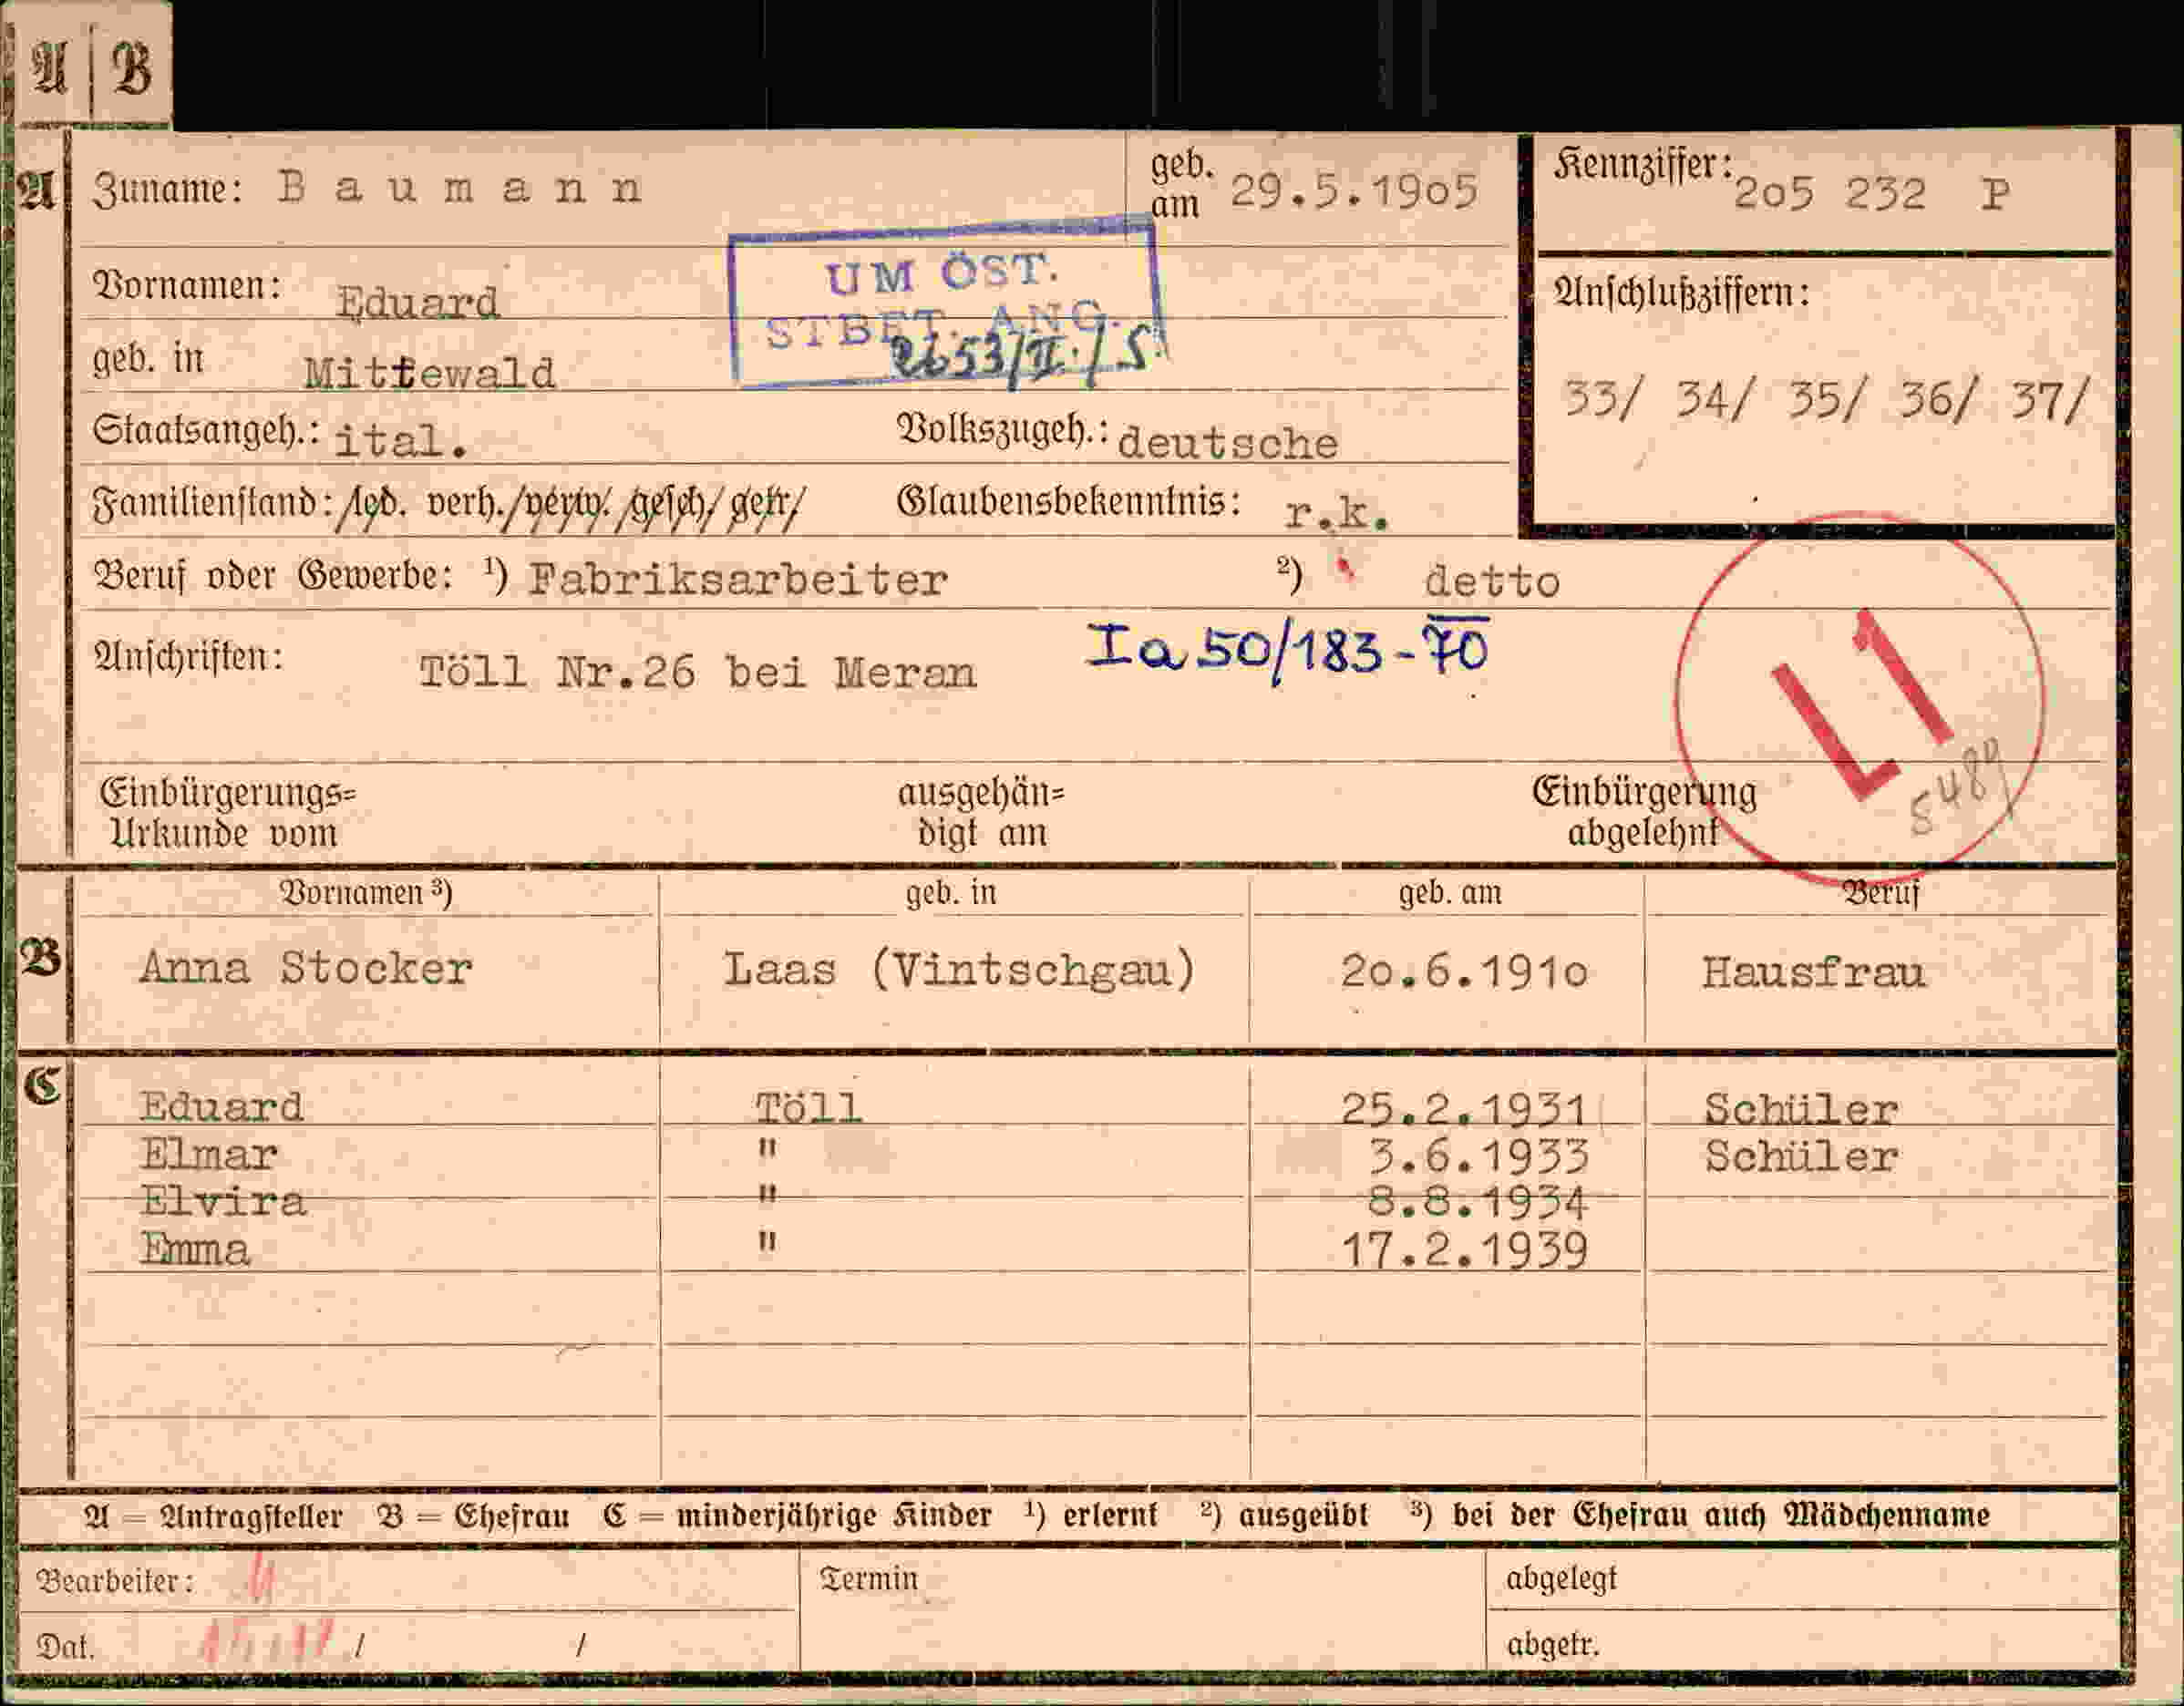 A | B
A Zuname: Baumann geb. am 29.5.1905 Kennziffer: 205 232 P
Vornamen: Eduard
UM ÖST.
STBET. ANG.
2653/II./S.
geb. in Mittewald
Anschlußziffern:
33/ 34/ 35/ 36/ 37/
Staatsangeh.: ital. Volkszugeh.: deutsche
Familienstand: /led. verh./verw./gesch/getr/ Glaubensbekenntnis: r.k.
Beruf oder Gewerbe: ¹) Fabriksarbeiter ²) detto
Anschriften: Töll Nr.26 bei Meran Ia 50/183-70
L1
Einbürgerungs= Urkunde vom ausgehän= digt am Einbürgerung abgelehnt
Vornamen ³) geb. in geb. am Beruf
B Anna Stocker Laas (Vintschgau) 20.6.1910 Hausfrau
C Eduard Töll 25.2.1931 Schüler
Elmar " 3.6.1933 Schüler
Elvira " 8.8.1934
Emma " 17.2.1939
A = Antragsteller B = Ehefrau C = minderjährige Kinder ¹) erlernt ²) ausgeübt ³) bei der Ehefrau auch Mädchenname
Bearbeiter: Termin abgelegt
Dat. / / abgetr.